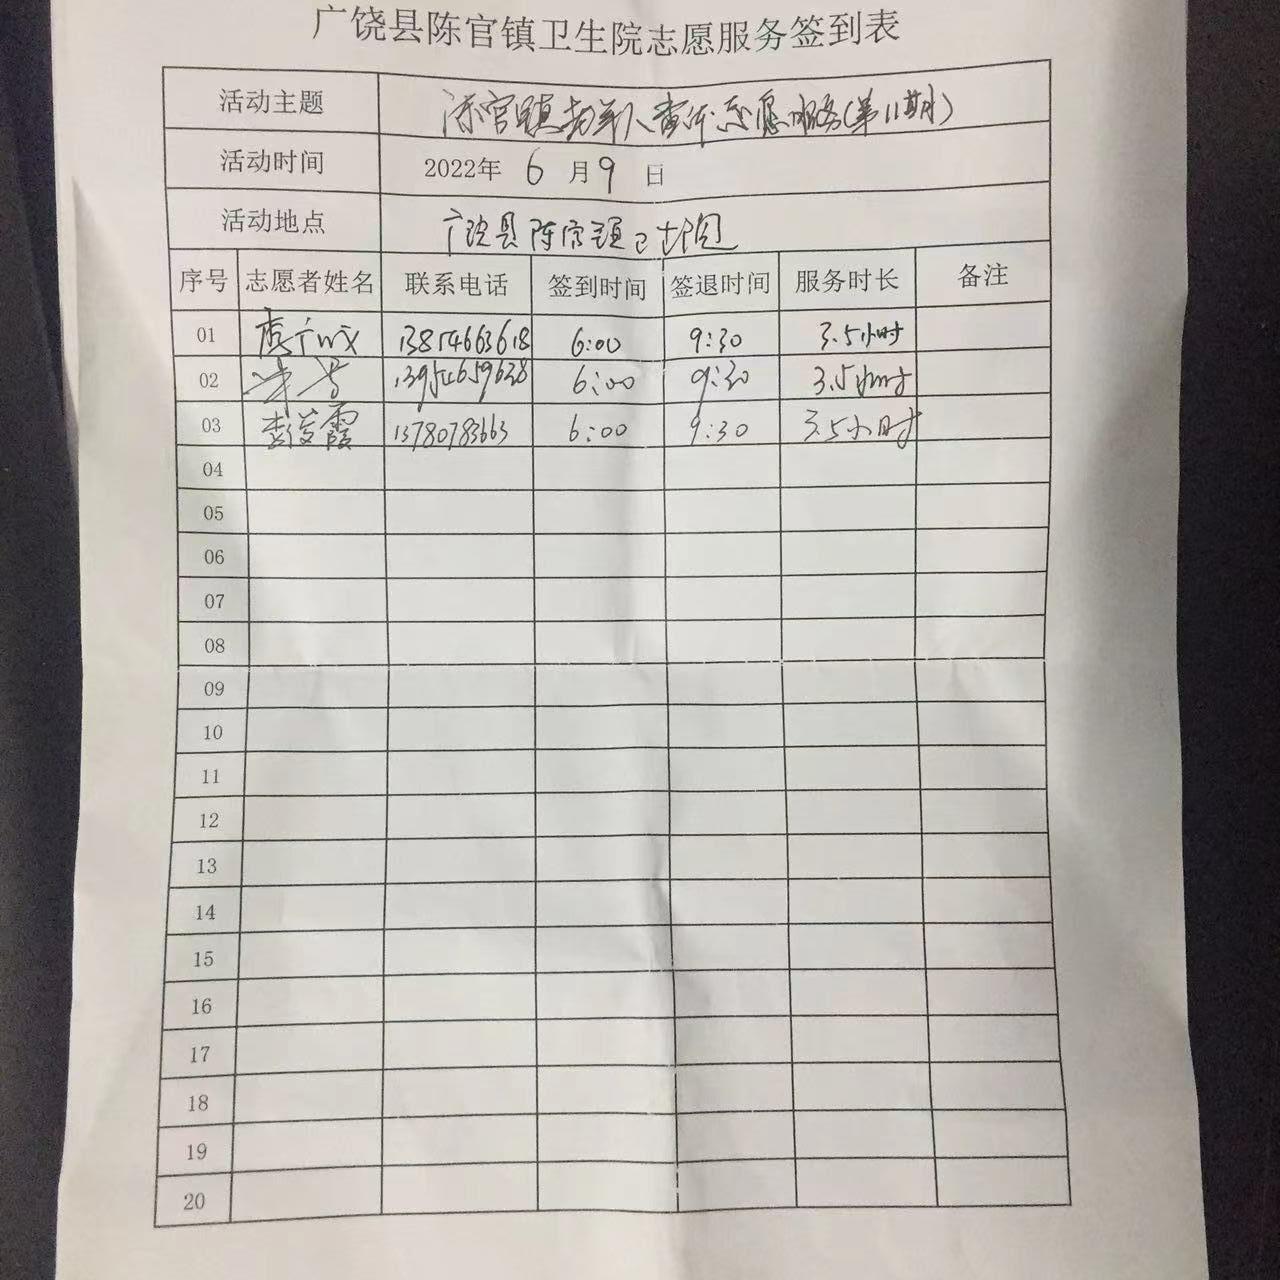 广饶县陈官镇卫生院志愿服务签到表
活动主题 陈官镇老年人查体志愿服务(第11期)
活动时间 2022年 6 月 9 日
活动地点 广饶县陈官镇卫生院
序号 志愿者姓名 联系电话 签到时间 签退时间 服务时长 备注
01 13854663618 6:00 9:30 3.5小时
02 13954659638 6:00 9:30 3.5小时
03 李俊霞 13780783663 6:00 9:30 3.5小时
04
05
06
07
08
09
10
11
12
13
14
15
16
17
18
19
20